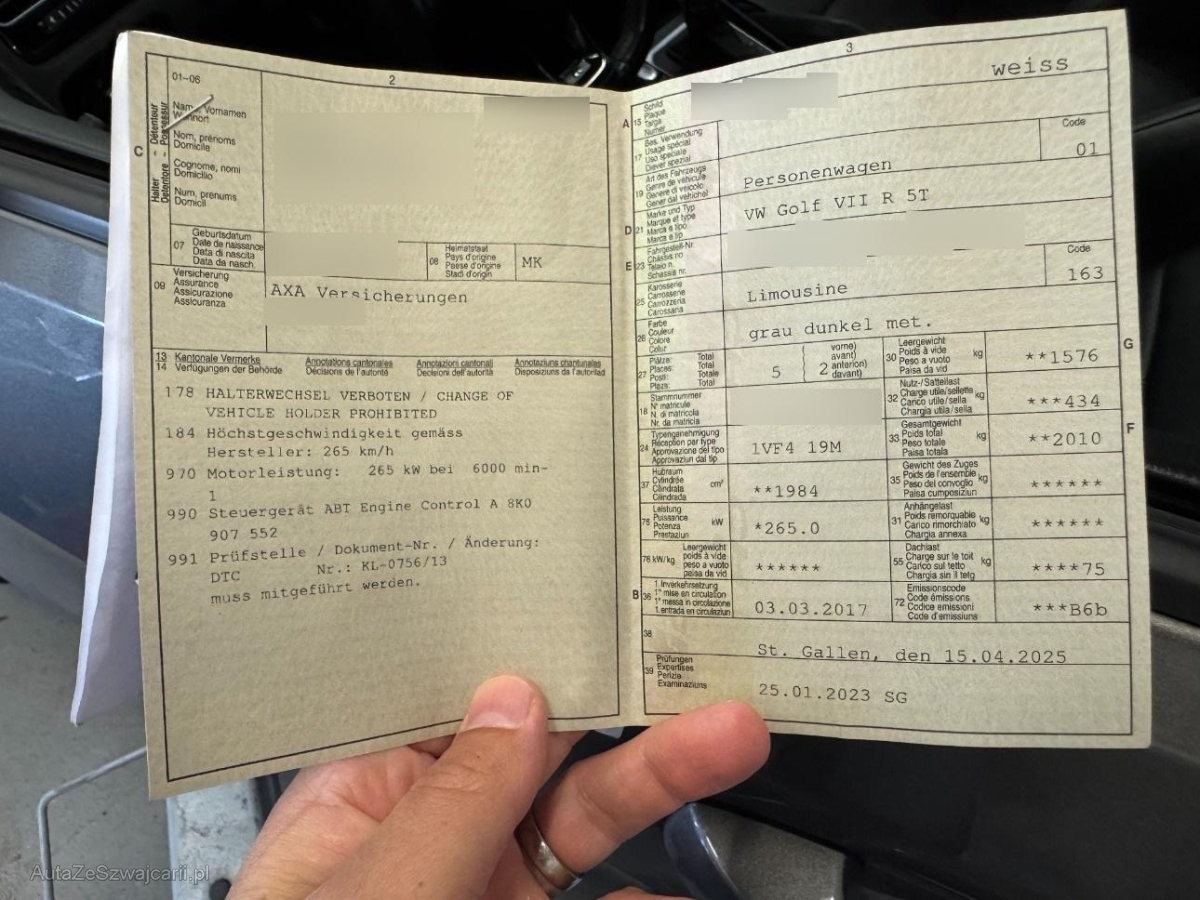 2
01-06
Halter - Détenteur
Detentore - Possessur
C
Name, Vornamen
Wohnort
Nom, prénoms
Domicile
Cognome, nomi
Domicilio
Num, prenums
Domicil
07
Geburtsdatum
Date de naissance
Data di nascita
Data da nasch.
08
Heimatstaat
Pays d'origine
Paese d'origine
Stadi d'origin
MK
09
Versicherung
Assurance
Assicurazione
Assicuranza
AXA Versicherungen
13
14
Kantonale Vermerke
Verfügungen der Behörde
Annotations cantonales
Décisions de l'autorité
Annotazioni cantonali
Decisioni dell'autorità
Annotaziuns chantunalas
Disposiziuns da l'autoritad
178 HALTERWECHSEL VERBOTEN / CHANGE OF
VEHICLE HOLDER PROHIBITED
184 Höchstgeschwindigkeit gemäss
Hersteller: 265 km/h
970 Motorleistung: 265 kW bei 6000 min-
1
990 Steuergerät ABT Engine Control A 8K0
907 552
991 Prüfstelle / Dokument-Nr. / Änderung:
DTC Nr.: KL-0756/13
muss mitgeführt werden.
3
weiss
A
15
Schild
Plaque
Targa
Numer
17
Bes. Verwendung
Usage spécial
Uso speciale
Diever spezial
Code
01
19
Art des Fahrzeugs
Genre de véhicule
Genere di veicolo
Gener dal vehichel
Personenwagen
D
21
Marke und Typ
Marque et type
Marca e tipo
Marca e tip
VW Golf VII R 5T
E
23
Fahrgestell-Nr.
Châssis no
Telaio n.
Schassis nr.
25
Karosserie
Carrosserie
Carrozzeria
Carossaria
Limousine
Code
163
26
Farbe
Couleur
Colore
Colur
grau dunkel met.
27
Plätze: Total
Places: Total
Posti: Totale
Plazs: Total
5
vorne)
avant)
2 anterion)
davant)
30
Leergewicht
Poids à vide
Peso a vuoto
Paisa da vid
kg
**1576
G
18
Stammnummer
N° matricule
N. di matricola
Nr. da matricla
32
Nutz-/Sattellast
Charge utile/sellette
Carico utile/sella
Chargia utila/sella
kg
***434
24
Typengenehmigung
Réception par type
Approvazione del tipo
Approvaziun dal tip
1VF4 19M
33
Gesamtgewicht
Poids total
Peso totale
Paisa totala
kg
**2010
F
37
Hubraum
Cylindrée
Cilindrata
Cilindrada
cm³
**1984
35
Gewicht des Zuges
Poids de l'ensemble
Peso del convoglio
Paisa cumposiziun
kg
******
76
Leistung
Puissance
Potenza
Prestaziun
kW
*265.0
31
Anhängelast
Poids remorquable
Carico rimorchiato
Chargia annexa
kg
******
78 kW/kg
Leergewicht
poids à vide
peso a vuoto
paisa da vid
******
55
Dachlast
Charge sur le toit
Carico sul tetto
Chargia sin il tetg
kg
****75
B
36
1. Inverkehrsetzung
1re mise en circulation
1a messa in circolazione
1. entrada en circulaziun
03.03.2017
72
Emissionscode
Code émissions
Codice emissioni
Code d'emissiuns
***B6b
38
St. Gallen, den 15.04.2025
39
Prüfungen
Expertises
Perizie
Examinaziuns
25.01.2023 SG
AutaZeSzwajcarii.pl